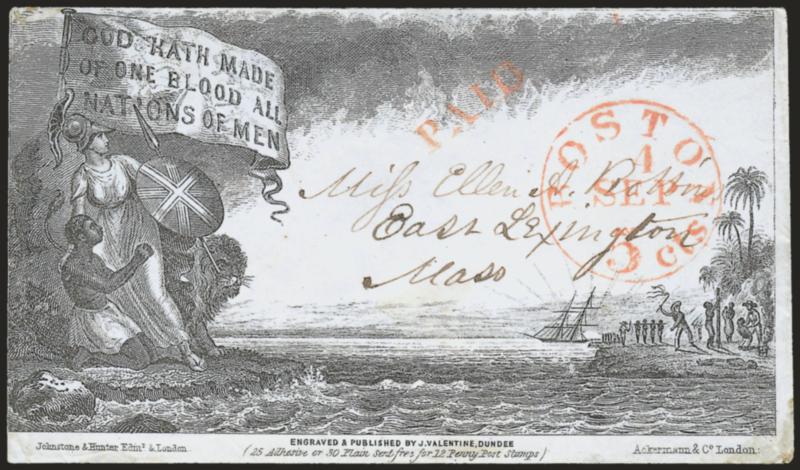 GOD HATH MADE
OF ONE BLOOD ALL
NATIONS OF MEN
PAID
BOSTON
1
SEP
5 cts
Miss Ellen A.
East Lexington
Mass
ENGRAVED & PUBLISHED BY J. VALENTINE, DUNDEE
(25 Adhesive or 30 Plain Sent free for 12 Penny Post Stamps)
Johnstone & Hunter Edinr. & London
Ackermann & Co. London